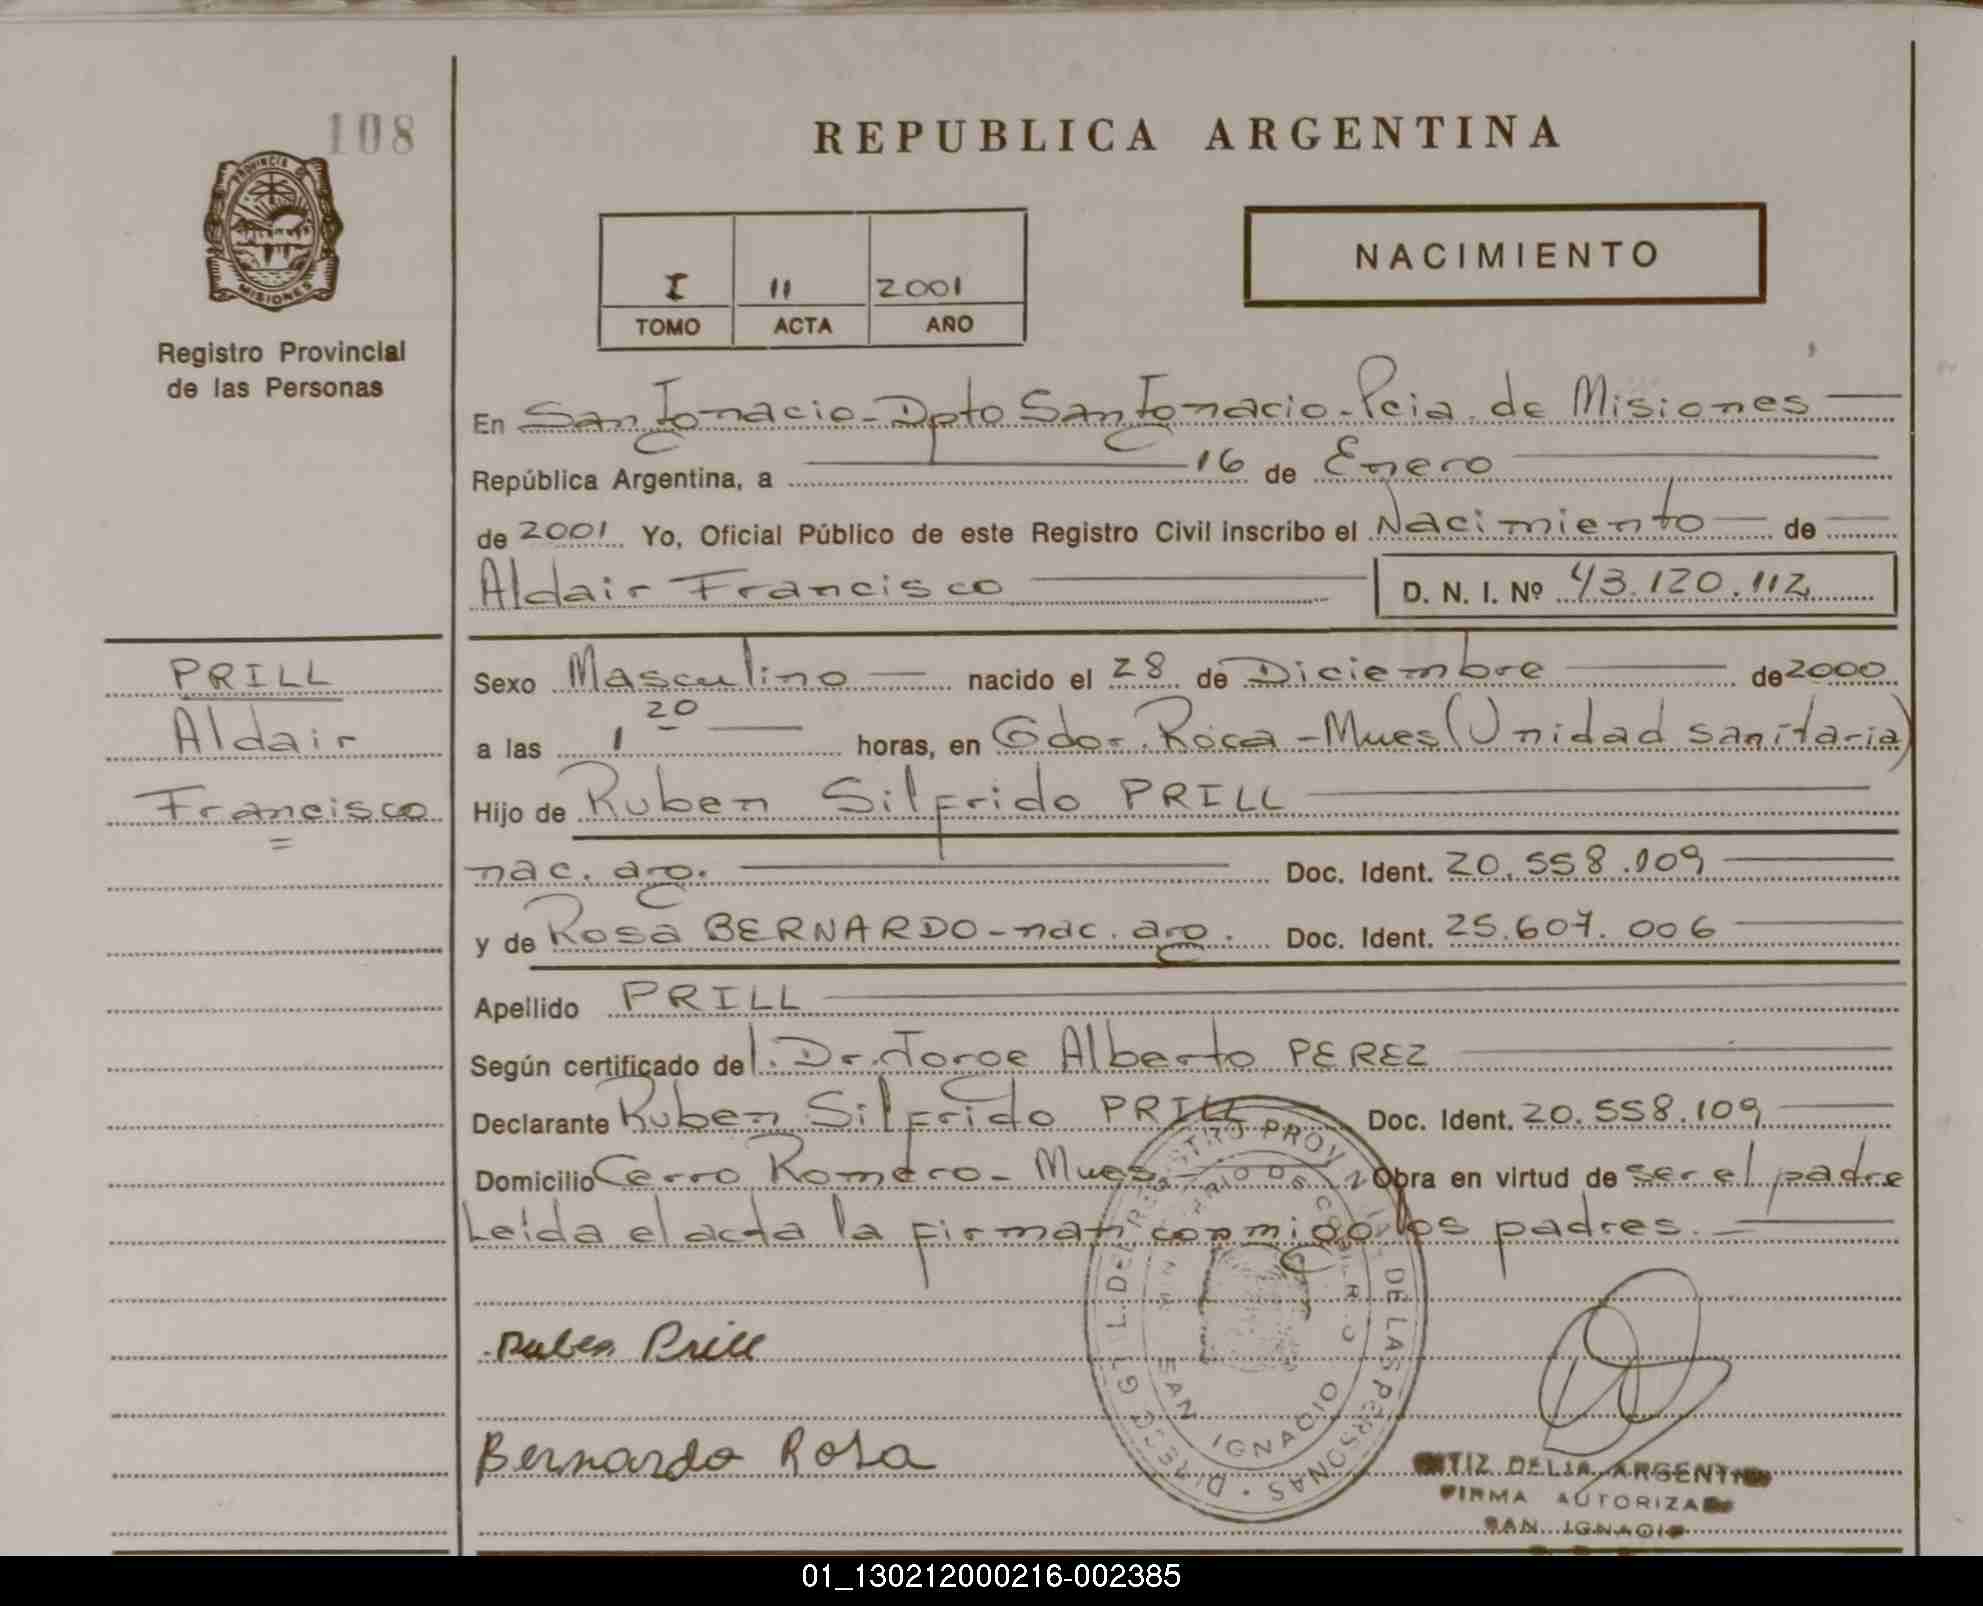 108
REPUBLICA ARGENTINA
PROVINCIA DE
MISIONES
Registro Provincial
de las Personas
I 11 2001
TOMO ACTA AÑO
NACIMIENTO
En San Ignacio-Dpto San Ignacio-Pcia. de Misiones
República Argentina, a 16 de Enero
de 2001 Yo, Oficial Público de este Registro Civil inscribo el Nacimiento de
Aldair Francisco D. N. I. Nº 43.120.112
PRILL
Aldair
Francisco
Sexo Masculino nacido el 28 de Diciembre de 2000
a las 1 20 horas, en Gdor. Roca-Mnes (Unidad sanitaria)
Hijo de Ruben Silfrido PRILL
nac. arg. Doc. Ident. 20.558.109
y de Rosa BERNARDO-nac. arg. Doc. Ident. 25.607.006
Apellido PRILL
Según certificado del. Dr. Jorge Alberto PEREZ
Declarante Ruben Silfrido PRILL Doc. Ident. 20.558.109
Domicilio Cerro Romero- Mnes Obra en virtud de ser el padre
Leída el acta la firman conmigo los padres.
Ruben Prill
Bernardo Rosa
DE LAS PERSONAS
SAN IGNACIO
DELIA ARGENTINA
FIRMA AUTORIZADA
SAN IGNACIO
01_130212000216-002385